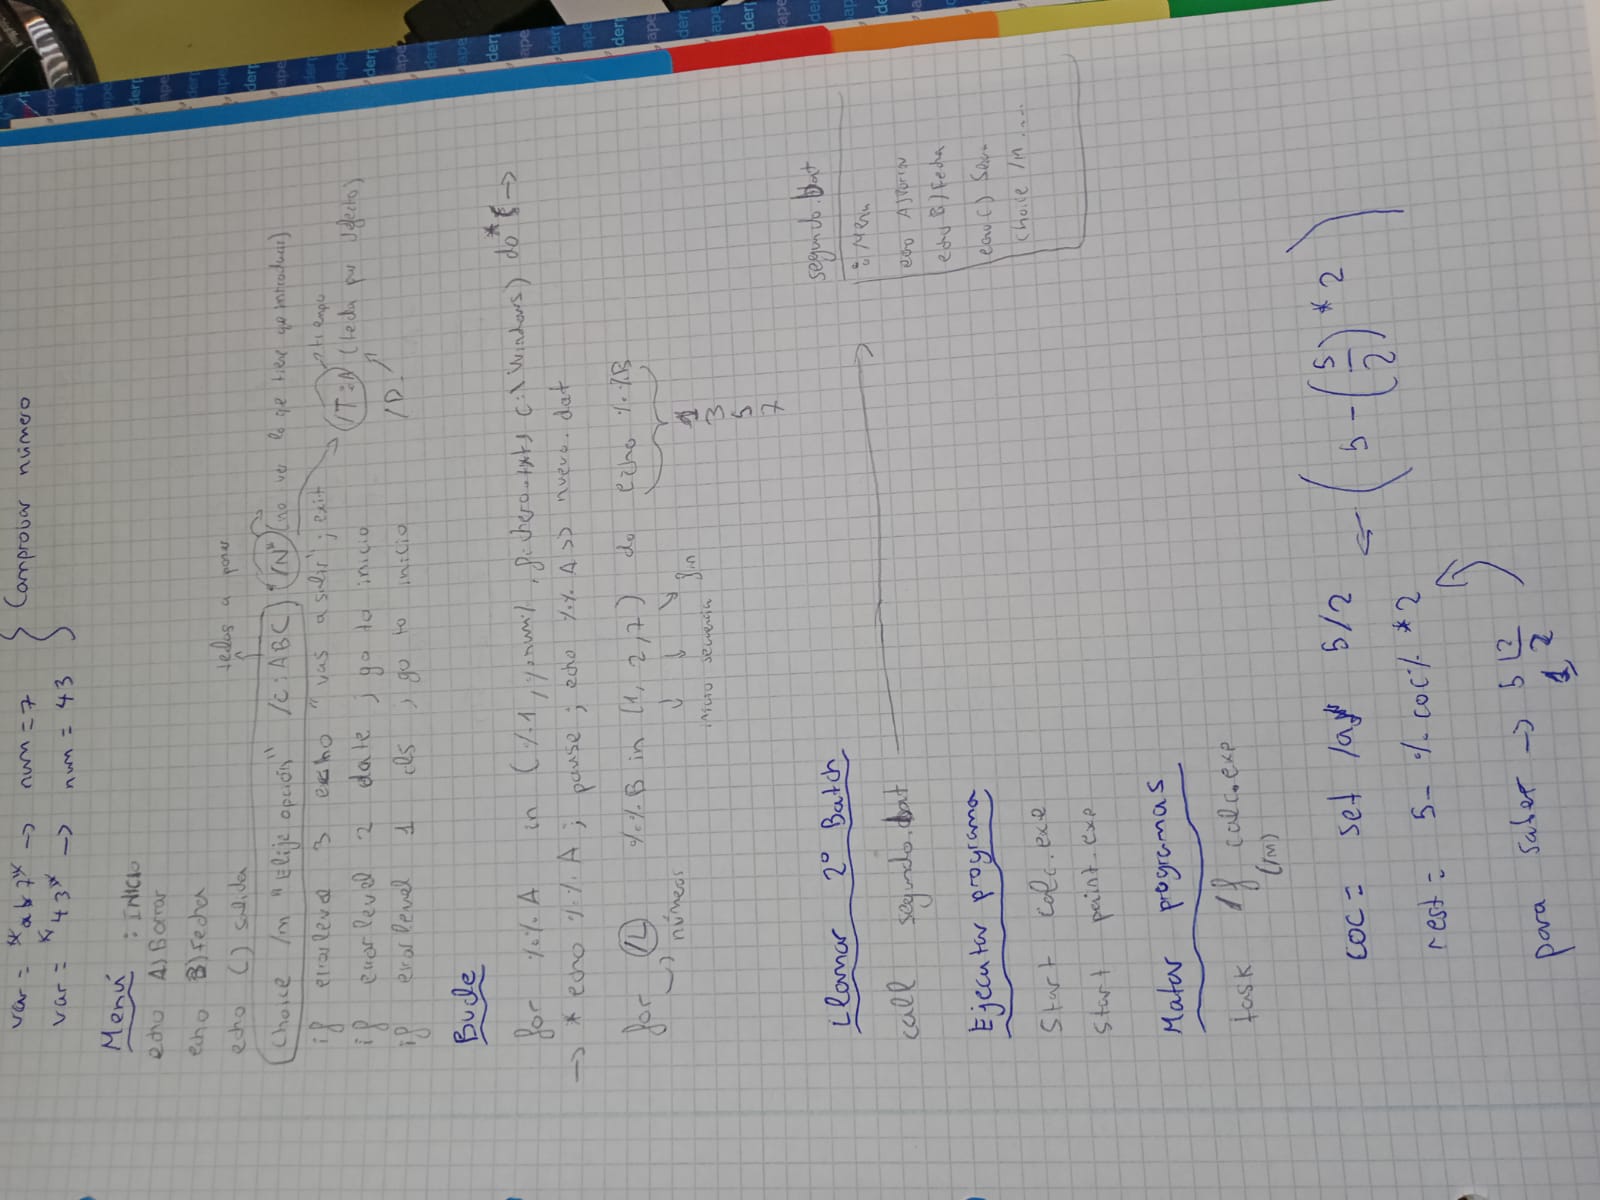 var = *ab7* → num = 7 } Comprobar número
var = *43* → num = 43
Menú : INICIO
echo A) Borrar
echo B) Fecha
echo C) salida
teclas a poner
Choice /m "Elije opción" /C:ABC /N* (no ver lo qe tiene qe introducir)
if errorlevel 3 echo "vas a salir"; exit /T:A tiempo (tecla por defecto)
if errorlevel 2 date ; go to inicio /D
if errorlevel 1 cls ; go to inicio
Bucle
for %%A in (%1, %num%, fichero.txt, C:\Windows) do * →
→ * echo %%A ; pause ; echo %%A >> nuevo.dat
for /L %%B in (1, 2, 7) do echo %%B
números
inicio secuencia fin
1
3
5
7
Llamar 2º Batch
call segundo.bat
segundo.bat
: Menu
echo A) Borrar
echo B) Fecha
echo C) Salida
choice /m ...
Ejecutar programa
Start calc.exe
Start paint.exe
Matar programas
task calc.exe
(/M)
coc = set /a 5/2 ← ( 5 - (5/2) * 2 )
rest = 5 - %coc% * 2
para saber → 5 |2
1, 2